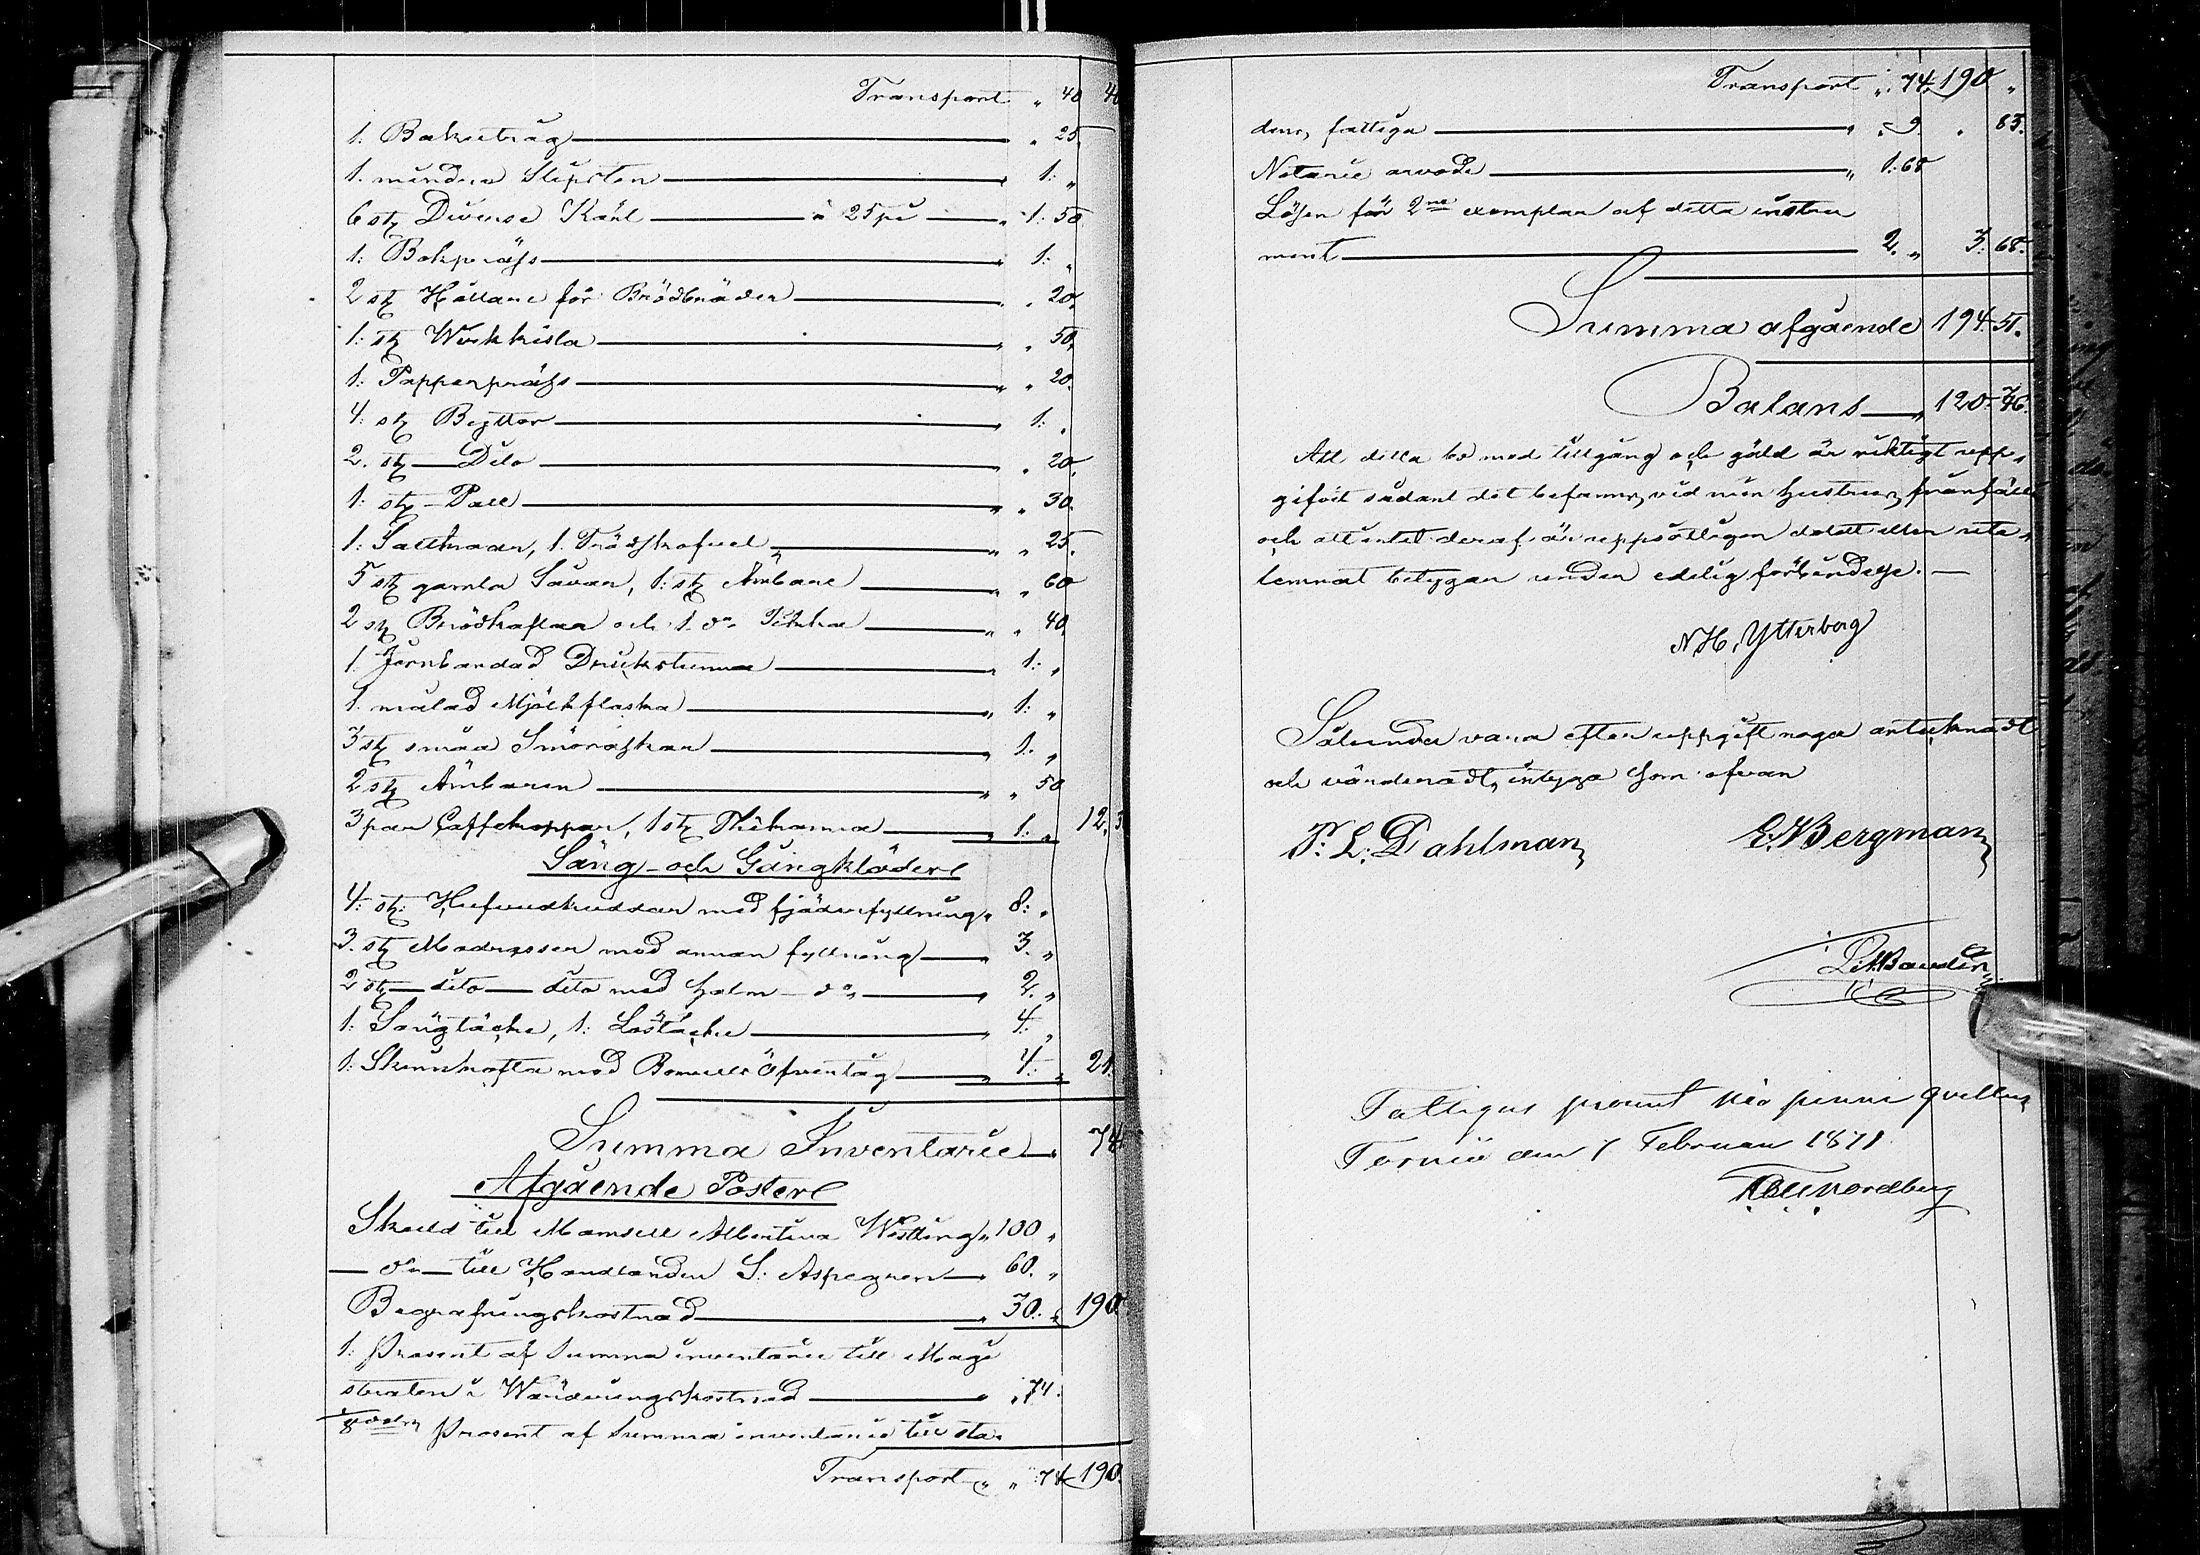 Transport „ 40 40
1. Baketråg „ 25.
1. mindre Slipsten 1: „
6 stz Diverse Kärl à 25 pi „ 1: 50
1: Bakpräss 1: „
2 stz Hållare för Brödbräder „ 20.
1: stz Werkkista „ 50.
1: Papperpräss „ 20.
4: stz Byttor 1: „
2. stz Dito „ 20
1: stz Pall „ 30.
1: Saltkaar, 1. Trädskofvel „ „ 25.
5 stz gamla Såar, 1: stz Ämbare „ „ 60
2 stz Brödkaflar och 1. d:o „ „ 40.
1. Jernbandad Drickstunna 1: „
1. målad Mjölkflaska „ 1: „
3 stz små Smöraskar 1. „
2 stz Ämbaren „ „ 50
3 par Caffekoppar, 1 stz Thékanna 1: „ 12. 3
Säng- och Gångkläder
4: stz: Hufvudkuddar med fjäderfyllning „ 8: „
3. stz Madrasser med annan fyllning 3. „
2 stz dito dito med halm d:o „ 2. „
1: Sängtäcke, 1: Lostäcke 4: „
1: Skinnkofta med Bomulls Öfvertåg „ 4: „ 21.
Summa Inventarie 74
Afgående Poster
Skuld till Mamsell Albertina Westling „ 100 „
— d:o — till Handlanden S: Aspegren 60. „
Begrafningskostnad „ 30. „ 190
1: Prosent af Summa inventarie till Magi
straten i Wärderingskostnad „ 74.
1/8 Prosent af Summa inventarie till sta-
Transport „ „ 74 190.
Transport „ 74. 190 „
dens fattiga „ „ 9. „ 83.
Notarie arvode „ 1: 68
Lösen för 2ne exemplar af detta instru
ment 2. „ 3: 68.
Summa afgående 194 51.
Balans „ 120. 46.
Att detta bo med tillgång och gäld är riktigt upp-
gifvit sådant det befanns vid min hustrus frånfälle
och att intet deraf är uppsåtligen doldt eller ute-
lemnat betygar under edelig förbindelse. —
N.H. Ytterberg
Sålunda vara efter uppgift noga antecknadt
och värderadt, intyga som ofvan
P: L: Dahlman E. Bergman
Fattigas prosent nio penni qvitteras
Torneå den 7 Februari 1871
Nordberg